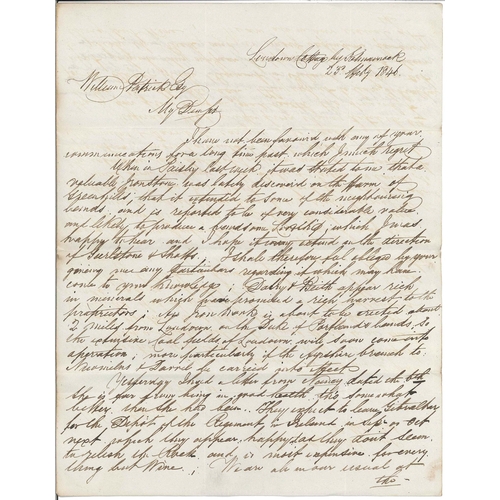 Loudoun Cottage by Kilmarnock
1846
William Patrick Esq
My Dear Sir
I have not been favoured with any of your
communications for a long time past which I much regret
When in Paisley last week it was stated to me that a
valuable Ironstone was lately discovered on the Farm of
Greenhills; that it extended to some of the neighbouring
lands, and is reported to be of very considerable value
and likely to produce a handsome Lordship, which I was
happy to hear and I hope it may extend in the direction
of & I shall therefore feel obliged by your
giving me any particulars regarding it which may have
come to your knowledge; Dalry & Beith appear rich
in minerals which promised a high harvest to the
proprietors; An Iron Work is about to be erected about
2 miles from Loudoun on the Duke of Portland's lands, so
the extensive Coal fields of Loudoun will soon come into
operation; more particularly if the Railway branch to
Newmilns & Darvel be carried into effect
Yesterday I had a letter from dated the
she is far from being in good health tho somewhat
better than she has been. They expect to leave Gibraltar
for the Depot of the Regiment in Ireland in Sepr or Oct
next at which they appear happy as they dont seem
to relish the Rock and is most expensive for every
thing but Wine; We are all in our usual
tho-